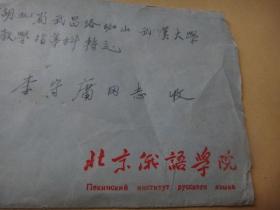 湖北省武昌珞珈山武漢大學
教學指導科轉交
李守庸同志 收
北京俄語學院
Пекинский институт русского языка